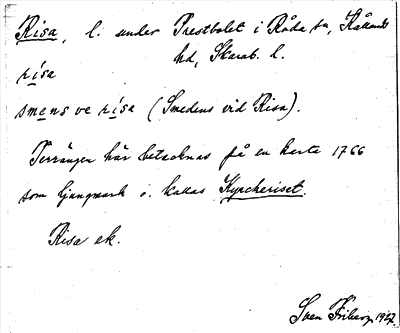 Risa, l. under Prestbolet i Råda sn, Kållands
hd, Skarab. l.
rísa
smens ve rísa (Smedens vid Risa).
Terrängen här betecknas på en karta 1766
som ljungmark o. kallas Kyrckeriset.
Risa ek.
Sven Friberg 1927